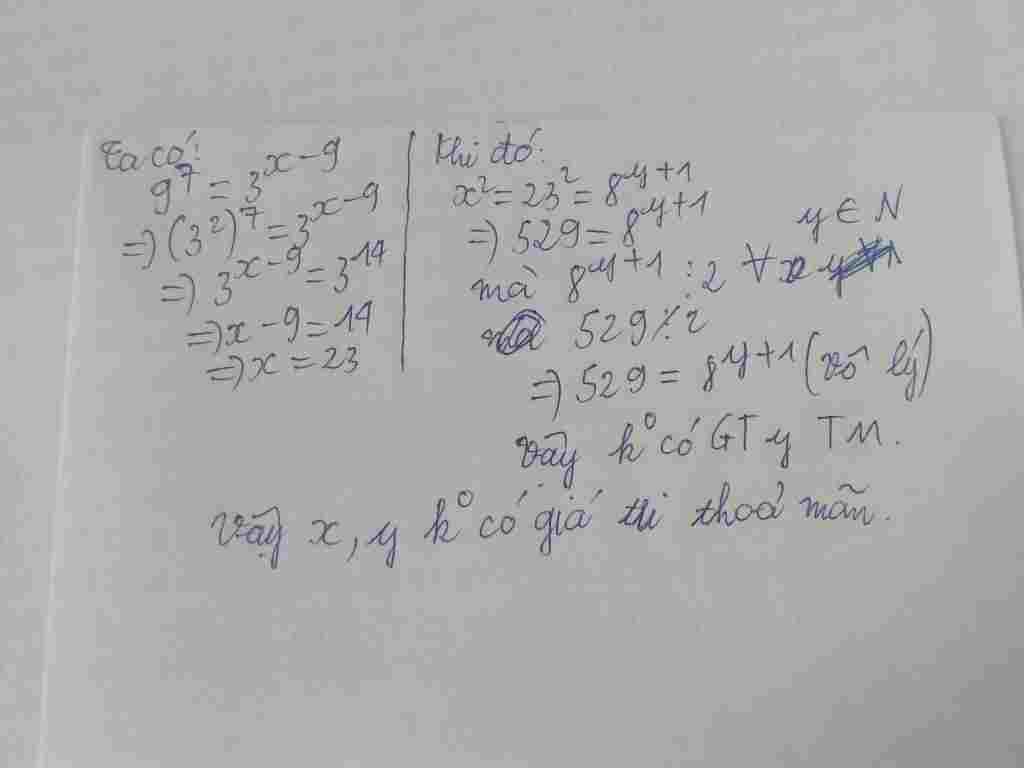 Ta có:
9^7 = 3^{x-9}
=> (3^2)^7 = 3^{x-9}
=> 3^{x-9} = 3^{14}
=> x - 9 = 14
=> x = 23
Khi đó:
x^2 = 23^2 = 8^{y+1}
=> 529 = 8^{y+1}
mà 8^{y+1} ⋮ 2 ∀ y ∈ N
529 ⋮̸ 2
=> 529 = 8^{y+1} (vô lý)
Vậy k° có GT y TM.
Vậy x, y k° có giá trị thoả mãn.